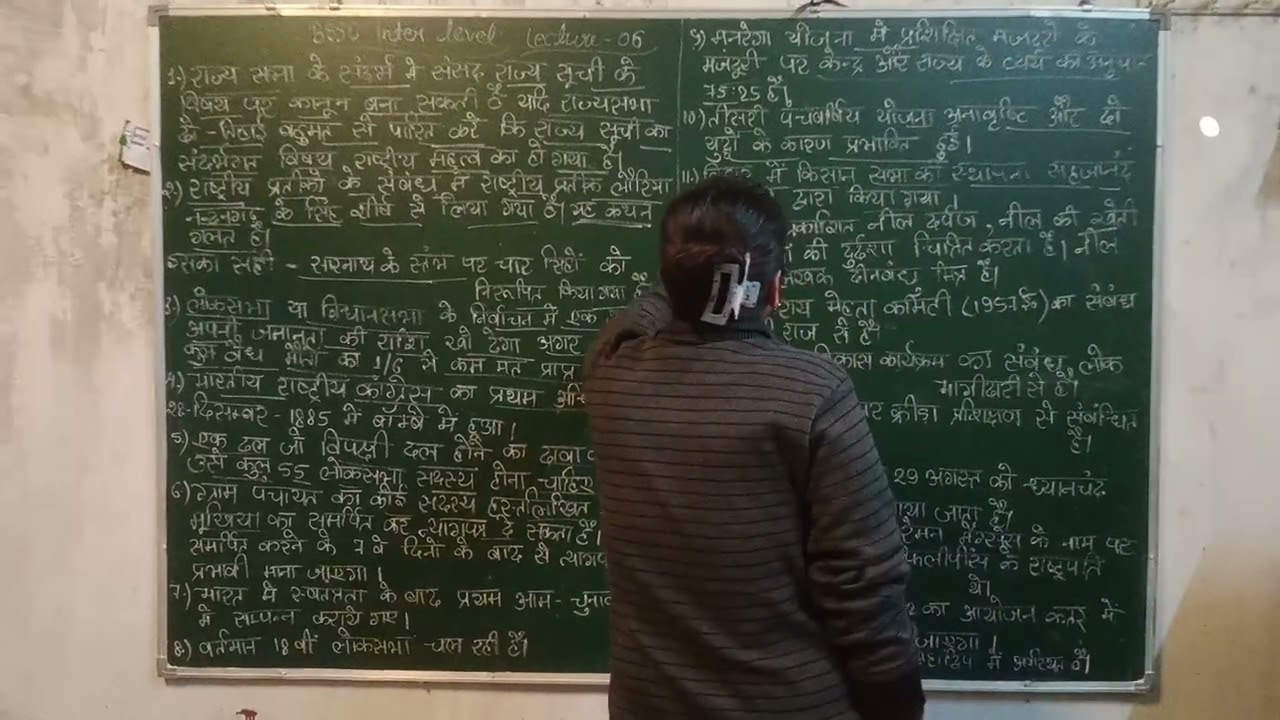 BSSC Inter level Lecture-06
1.) राज्य सभा के संदर्भ में संसद राज्य सूची के
विषय पर कानून बना सकती है यदि राज्यसभा
दो-तिहाई बहुमत से पारित करें कि राज्य सूची का
संदर्भगत विषय राष्ट्रीय महत्व का हो गया है।
2) राष्ट्रीय प्रतीकों के संबंध में राष्ट्रीय प्रतीक लौरिया
नन्दनगढ़ के सिंह शीर्ष से लिया गया है। यह कथन
गलत है।
इसका सही - सारनाथ के स्तंभ पर चार सिंहों को
निरूपित किया गया है
3) लोकसभा या विधानसभा के निर्वाचन में एक
अपनी जमानत की राशि खो देगा अगर
कुल वैध मतों का 1/6 से कम मत प्राप्त
4) भारतीय राष्ट्रीय कांग्रेस का प्रथम
28-दिसम्बर-1885 में बॉम्बे में हुआ।
5) एक दल जो विपक्षी दल होने का दावा
उसे कुल 55 लोकसभा सदस्य होना चाहिए
6) ग्राम पंचायत का कोई सदस्य हस्तलिखित
मुखिया को समर्पित कर त्यागपत्र दे सकता है।
समर्पित करने के 7 वें दिनों के बाद से
प्रभावी माना जाएगा।
7.) भारत में स्वतंत्रता के बाद प्रथम आम-चुनाव
में सम्पन्न कराये गए।
8) वर्तमान 18वीं लोकसभा चल रही है।
9) मनरेगा योजना में प्रशिक्षित मजदूरों के
मजदूरी पर केन्द्र और राज्य के व्यय का अनुपा-
75:25 है।
10) तीसरी पंचवर्षीय योजना अनावृष्टि और दो
युद्धों के कारण प्रभावित हुई।
11.) में किसान सभा का स्थापना सहजानंद
द्वारा किया गया।
नील दर्पण, नील की खेती
की दुर्दशा चित्रित करता है। नील
लेखक दीनबंधु मित्र है।
राय मेहता कमिटी (1957 ई०) का संबंध
राज से है
विकास कार्यक्रम का संबंध लोक
भागीदारी से है।
क्रीड़ा प्रशिक्षण से संबंधित
है।
29 अगस्त को ध्यानचंद
जाता है।
रेमन मैग्सेसे के नाम पर
फिलीपींस के राष्ट्रपति
थे।
का आयोजन कतर में
जाएगा।
में अवस्थित है।